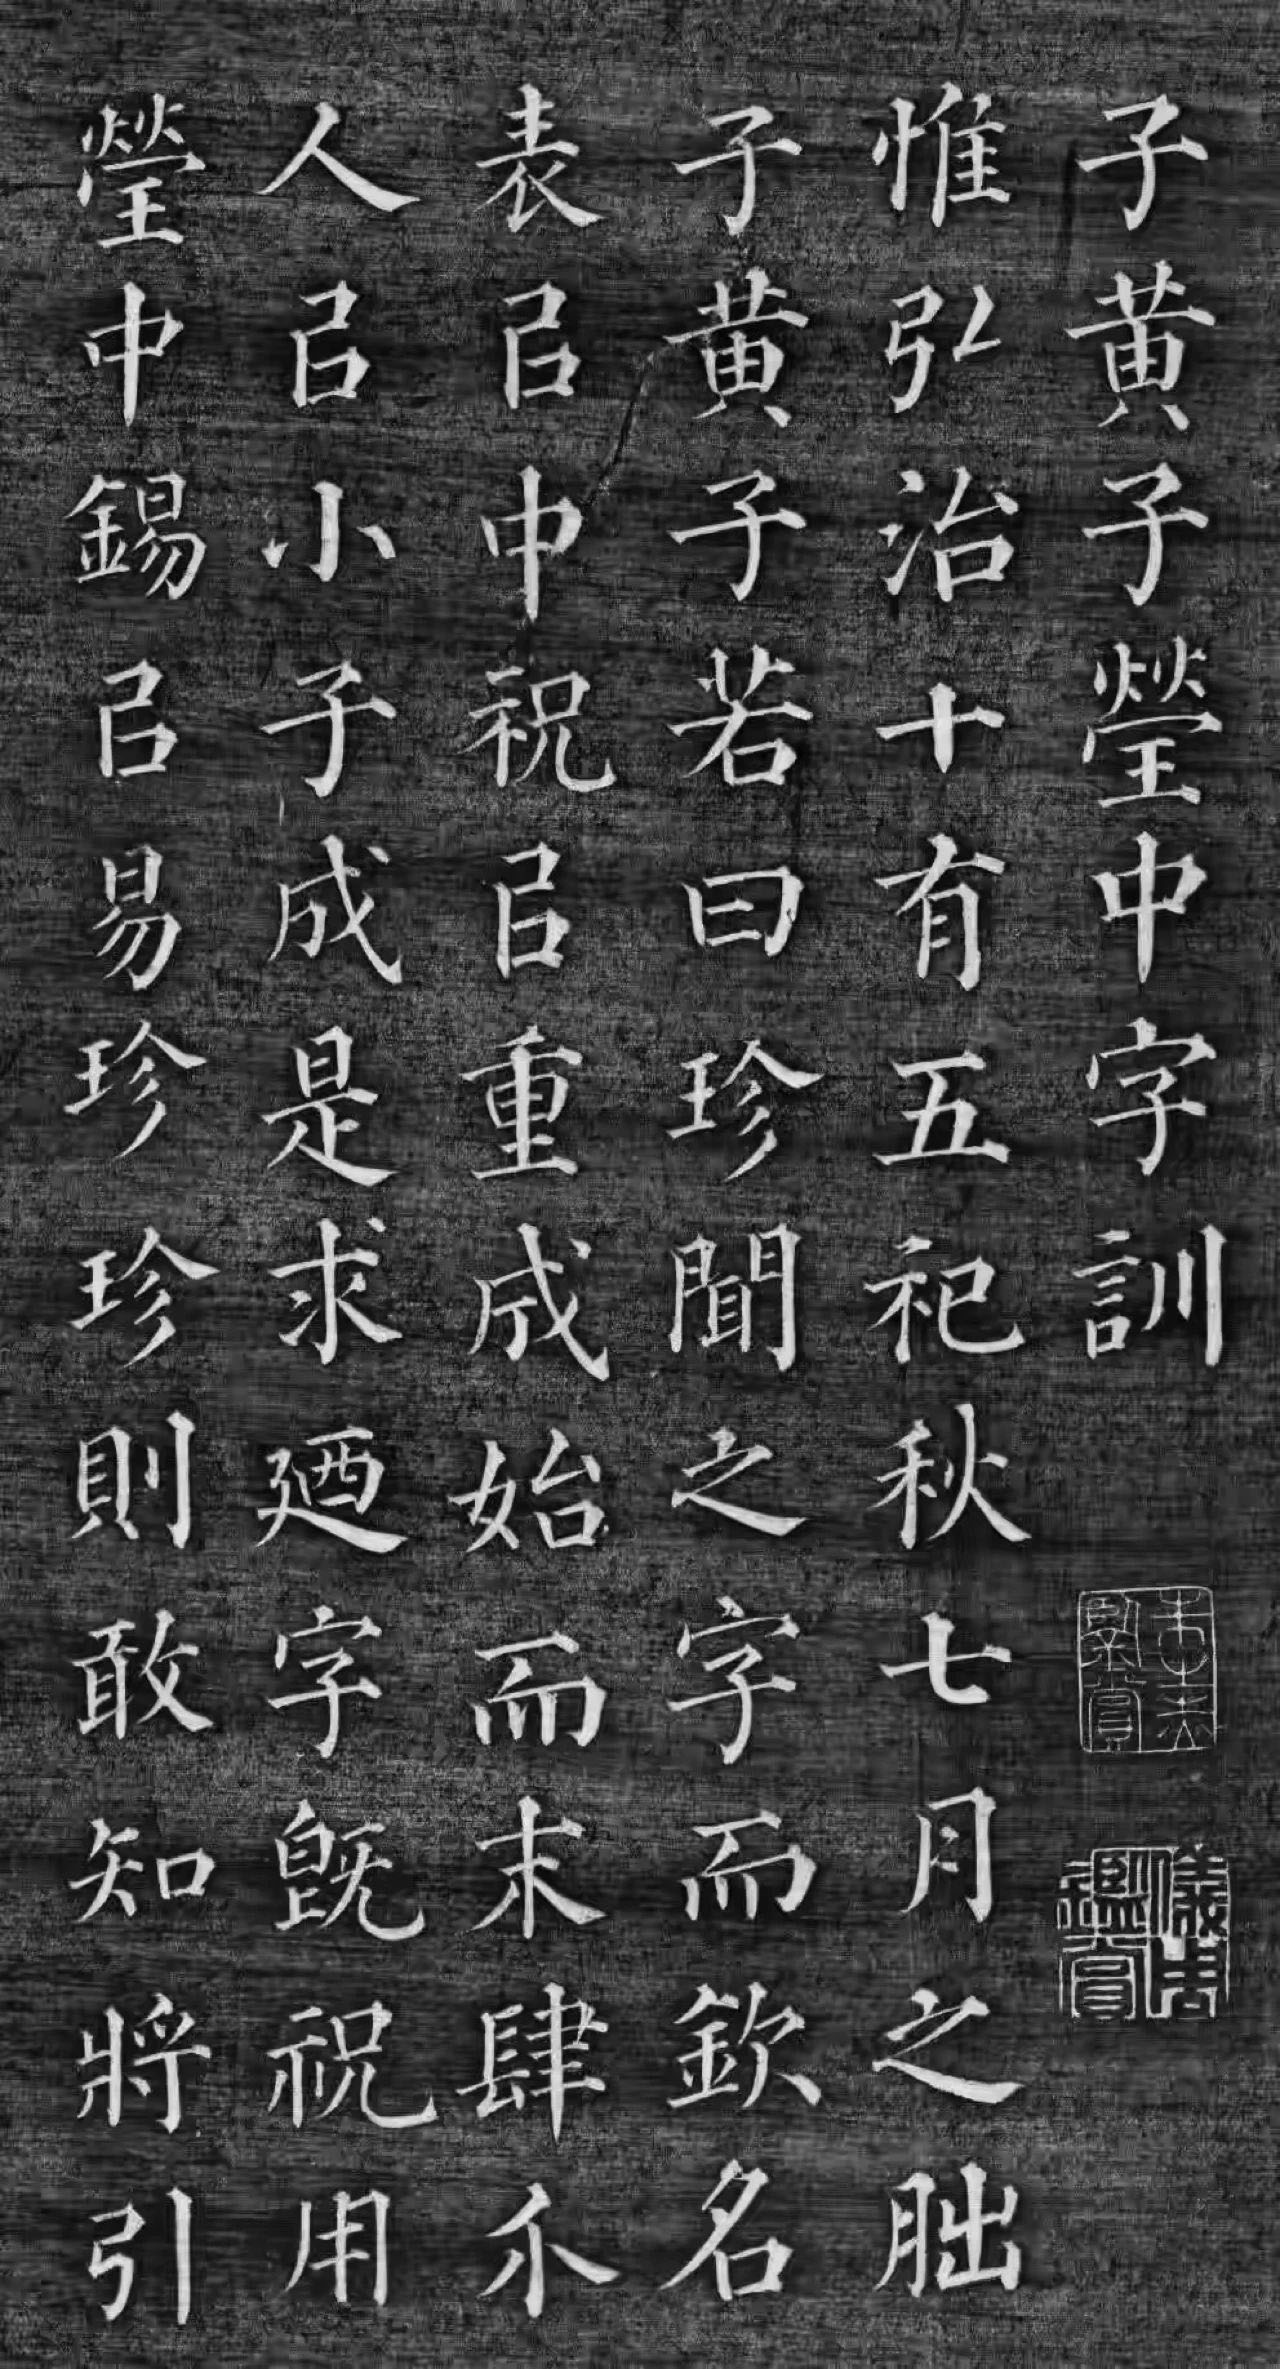 子黄子瑩中字訓
惟弘治十有五祀秋七月之朏
子黄子若曰珍聞之字而欽名
表㠯中祝㠯重成始而末肆尒
人㠯小子成是求廼字旣祝用
瑩中錫㠯易珍珍則敢知將引